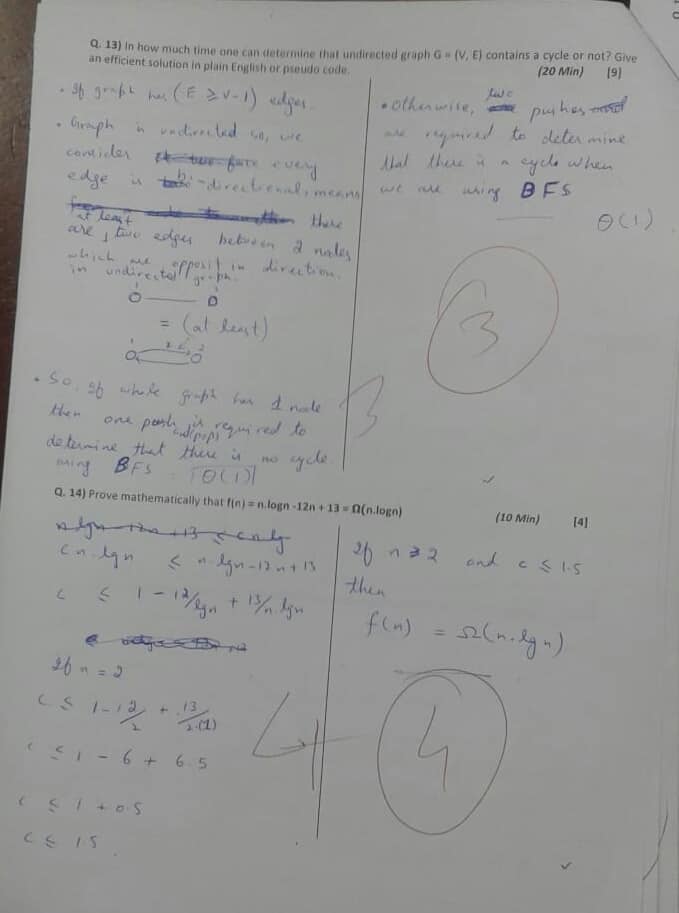 Q. 13) In how much time one can determine that undirected graph G = (V, E) contains a cycle or not? Give
an efficient solution in plain English or pseudo code.
(20 Min) [9]
• If graph has (E ≥ V-1) edges.
• Graph is undirected so, we
consider every
edge is bi-directional, means
there
are at least two edges between 2 nodes
which are opposit in direction.
in undirected graph.
= (at least)
• So, if whole graph has 1 node
then one push and pop is required to
determine that there is no cycle.
using BFS θ(1)
• Otherwise, two pushes
are required to determine
that there is a cycle when
we are using BFS
θ(1)
3
3
Q. 14) Prove mathematically that f(n) = n.logn -12n + 13 = Ω(n.logn)
(10 Min) [4]
c n.lgn ≤ n.lgn-12n+13
c ≤ 1 - 12/lgn + 13/n.lgn
If n = 2
c ≤ 1-12/2 + 13/2.(1)
c ≤ 1 - 6 + 6.5
c ≤ 1 + 0.5
c ≤ 1.5
If n ≥ 2 and c ≤ 1.5
then
f(n) = Ω(n.lgn)
4
4